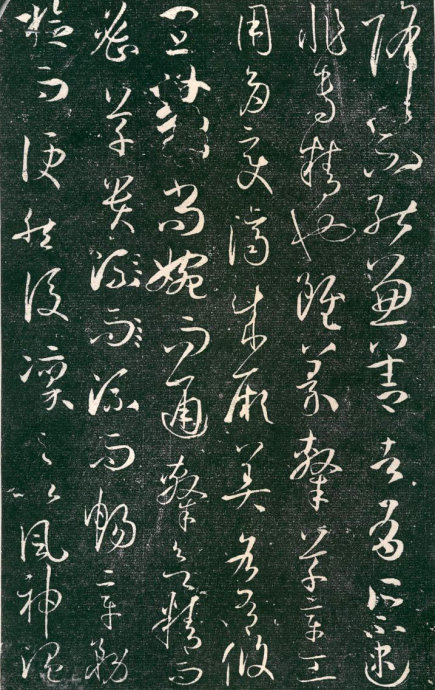 降不能兼善者有所不逮
非專精也雖篆隸草章工
用多變濟成厥美各有攸
宜篆尚婉而通隸欲精而
密草貴流而流而暢章務
檢而便然後凜之以風神溫